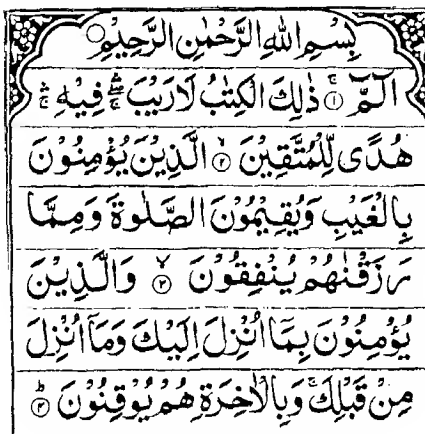 بِسْمِ اللهِ الرَّحْمٰنِ الرَّحِيْمِ
الٓمّٓ ۚ﴿۱﴾ ذٰلِكَ الْكِتٰبُ لَا رَيْبَ ۛۖ فِيْهِ ۛۚ
هُدًى لِّلْمُتَّقِيْنَ ۙ﴿۲﴾ الَّذِيْنَ يُؤْمِنُوْنَ
بِالْغَيْبِ وَيُقِيْمُوْنَ الصَّلٰوةَ وَمِمَّا
رَزَقْنٰهُمْ يُنْفِقُوْنَ ۙ﴿۳﴾ وَالَّذِيْنَ
يُؤْمِنُوْنَ بِمَآ اُنْزِلَ اِلَيْكَ وَمَآ اُنْزِلَ
مِنْ قَبْلِكَ ۚ وَبِالْاٰخِرَةِ هُمْ يُوْقِنُوْنَ ؕ﴿۴﴾